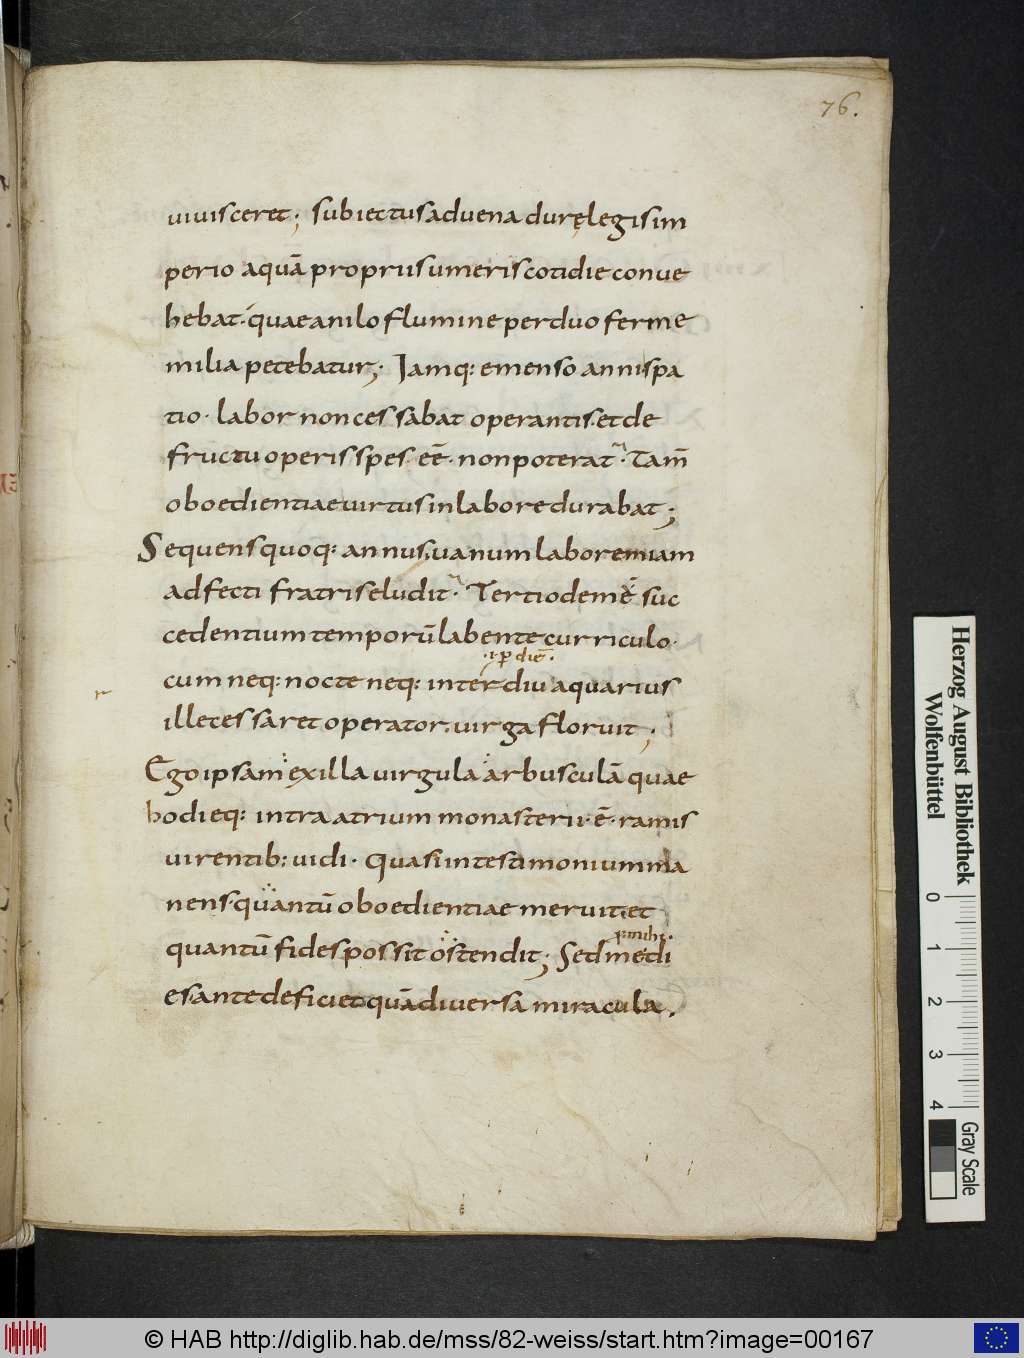 76.
uiuisceret; subiectus aduena durę legis im
perio aquā propriis umeris cotidie conue
hebat. quae a nilo flumine per duo ferme
milia petebatur; Iamq: emenso anni spa
tio. labor non cessabat operantis. et de
fructu operis spes. eē. non poterat. Tam̄
oboedientiae uirtus in labore durabat;
Sequens quoq: annus. uanum laborem iam
adfecti fratris eludit. Tertio demē suc
cedentium temporū labente curriculo.
.i. p diē.
cum neq: nocte neq: interdiu aquarius
ille cessaret operator. uirga floruit;
Ego ipsam ex illa uirgula arbusculā quae
hodieq: intra atrium monasterii. ē. ramis
uirentib: uidi. Quasi in testimonium ma
nens quantū oboedientiae meruit. et
quantū fides possit ostendit; Sed me di
es ante deficiet quā diuersa miracula.
Herzog August Bibliothek
Wolfenbüttel
0 1 2 3 4
Gray Scale
© HAB http://diglib.hab.de/mss/82-weiss/start.htm?image=00167